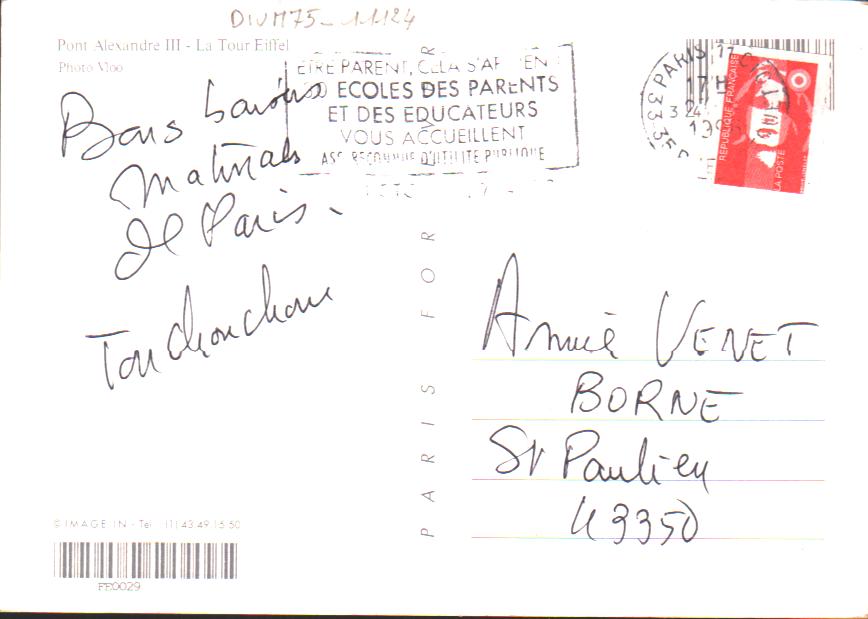 DIVM75_11124
Pont Alexandre III - La Tour Eiffel
Photo Moo
ETRE PARENT, CELA S'AP EN
ECOLES DES PARENTS
ET DES EDUCATEURS
VOUS ACCUEILLENT
ASS. RECONNUE D'UTILITE PUBLIQUE
PARIS 17
17H
3 24
REPUBLIQUE FRANÇAISE
LA POSTE
Bons baisers
matinals
de Paris.
Ton Chouchou
PARIS FOR
Annie VENET
BORNE
St Paulien
43350
© IMAGE IN - Tel (1) 43.49.15.50
FE0029